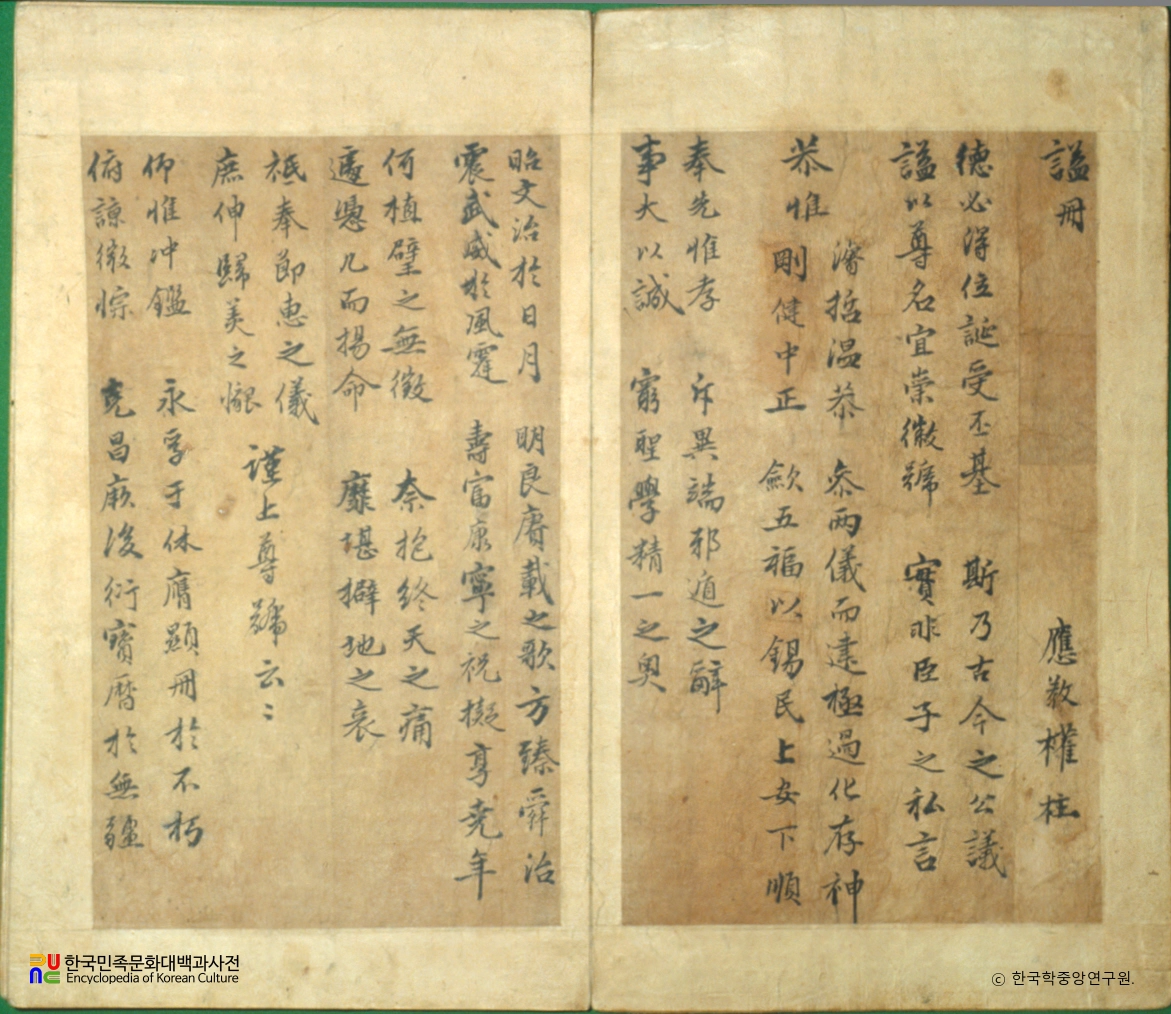 謚冊 應教權柱
德必得位誕受丕基 斯乃古今之公議
謚以尊名宜崇徽號 實非臣子之私言
恭惟
濬哲温恭 叅兩儀而建極過化存神
剛健中正 歛五福以錫民上安下順
奉先惟孝 斥異端邪遁之辭
事大以誠 窮聖學精一之奥
昭文治於日月 明良賡載之歌方臻舜治
震武威於風霆 壽富康寧之祝擬享堯年
何植璧之無徵 奈抱終天之痛
遽憑几而揚命 靡堪擗地之哀
祗奉節惠之儀
庶伸歸美之懇 謹上尊號云〻
仰惟冲鑑 永孚于休膺顯冊於不朽
俯諒微悰 克昌厥後衍寳曆於無疆
한국민족문화대백과사전
Encyclopedia of Korean Culture
ⓒ 한국학중앙연구원.